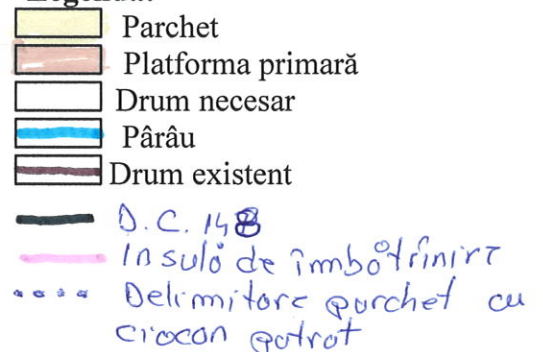 Legenda:
Parchet
Platforma primară
Drum necesar
Pârâu
Drum existent
D.C. 148
Insulă de îmbătrînire
Delimitare parchet cu
ciocan patrat